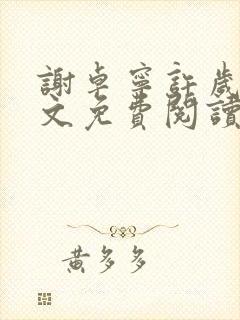 謝卓寧許歲
文免費閱讀
黃多多